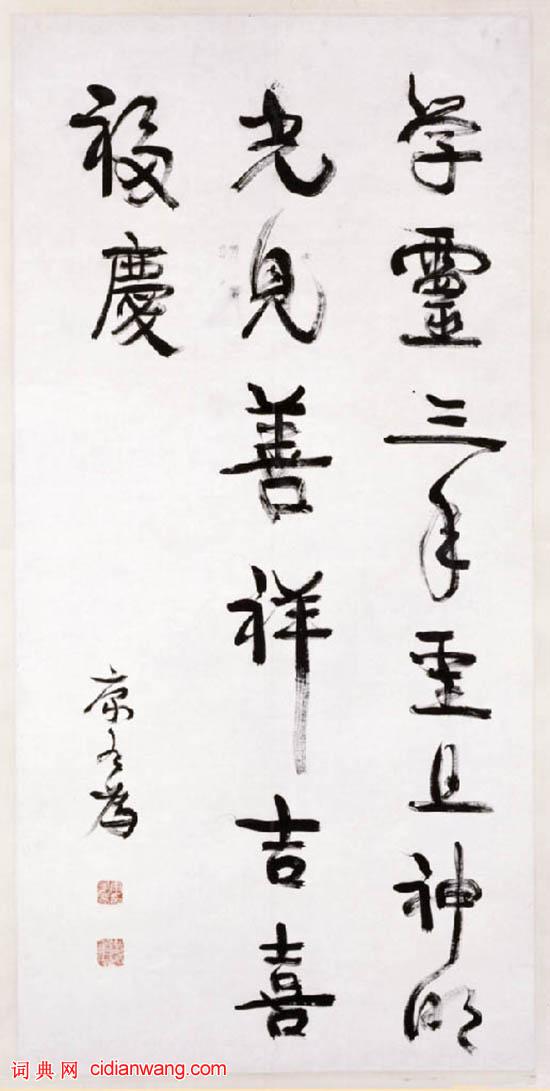 学靈三年聖且神明
光見善祥吉喜
福慶
康有為
词典网 cidianwang.com